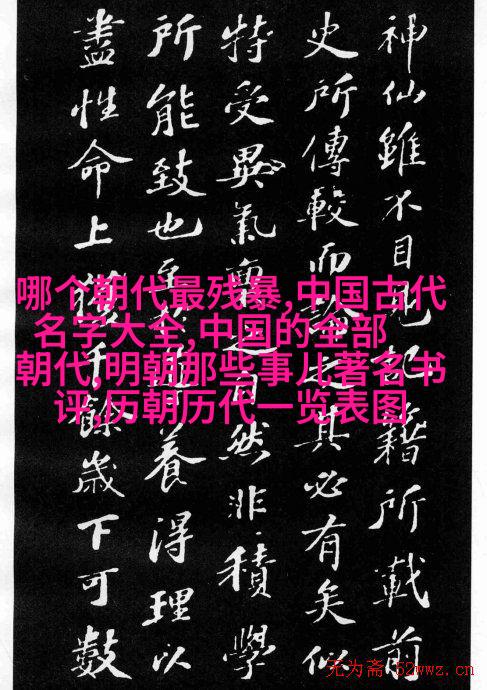 神仙雖不目見記籍所載前
史所傳較而論之其必有矣似
特受異氣稟之自然非積學
所能致也至於導養得理以
盡性命上獲千餘歲下可數
哪个朝代最残暴,中国古代
名字大全,中国的全部
朝代,明朝那些事儿著名书
评,历朝历代一览表图
无为斋 52wwz.cn